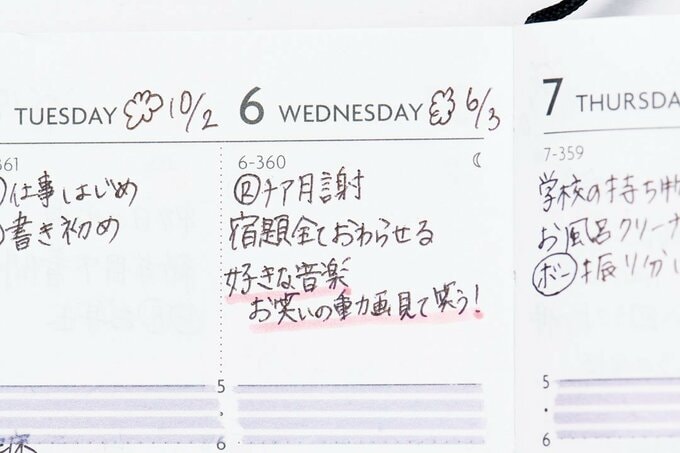 TUESDAY 10/2
361
仕事はじめ
書き初め
5
6
6 WEDNESDAY 6/3
6-360
Ⓡチア月謝
宿題全ておわらせる
好きな音楽
お笑いの動画見て笑う!
7 THURSDA
7-359
学校の持ち物
お風呂クリーナ
ボー 振り分
5
6